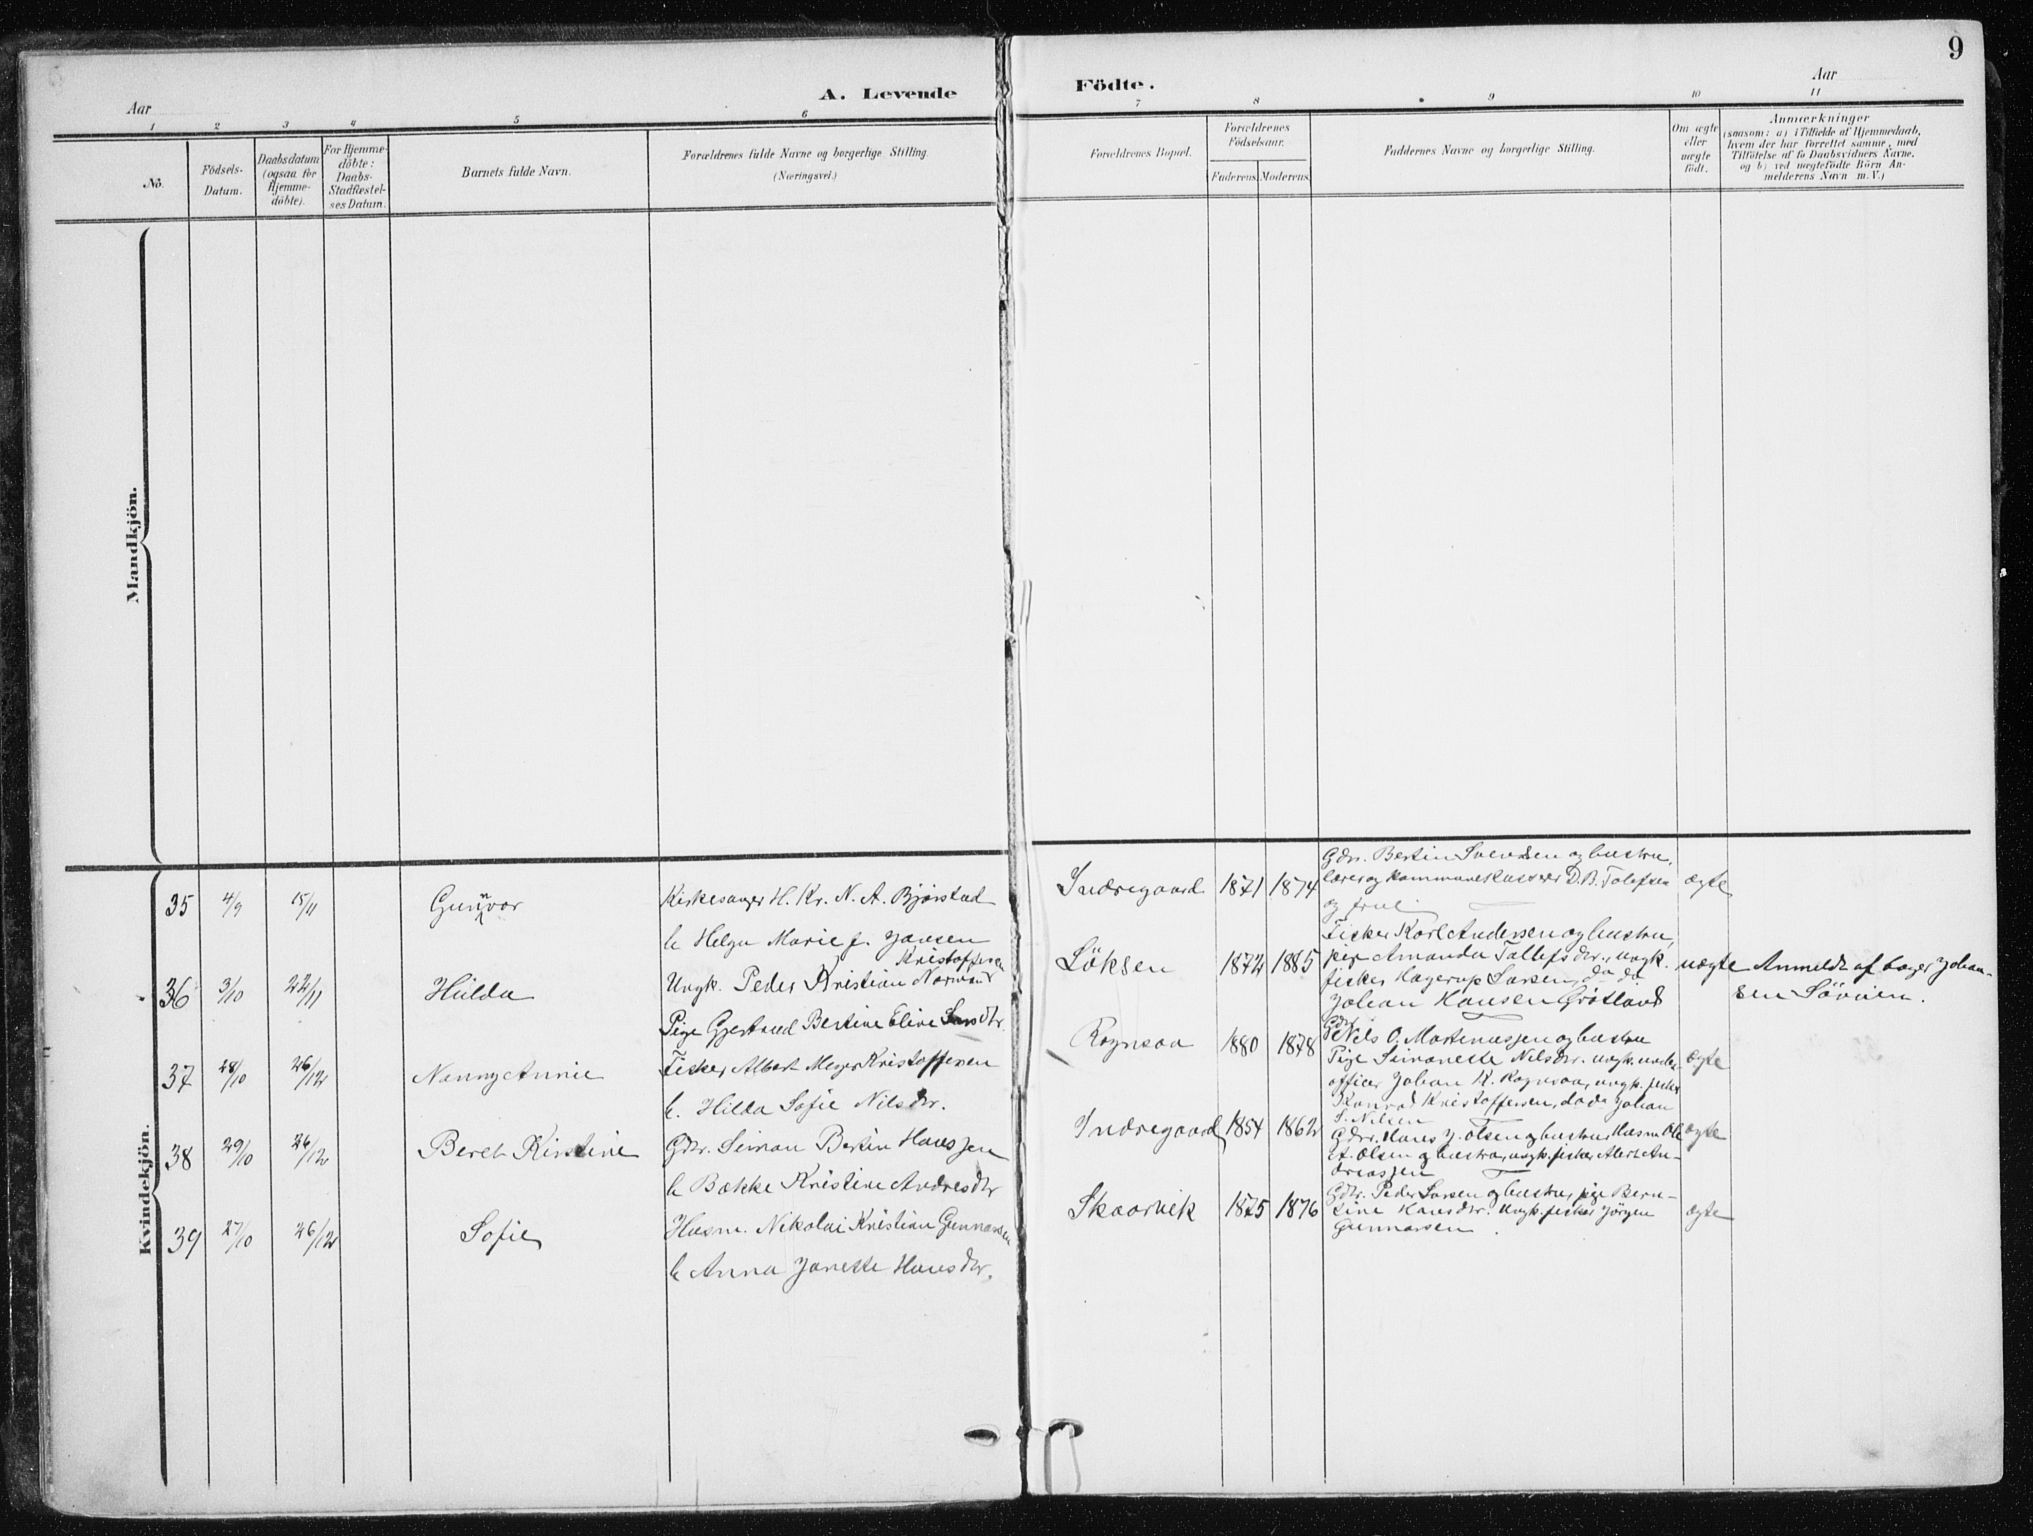 9
Aar
A. Levende
Födte.
Aar
1 2 3 4 5 6 7 8 9 10 11
No.
Födsels-
Datum.
Daabsdatum
(ogsaa for
Hjemme-
döbte).
For Hjemme-
döbte:
Daabs-
Stadfæstel-
ses Datum.
Barnets fulde Navn.
Forældrenes fulde Navne og borgerlige Stilling.
(Næringsvei.)
Forældrenes Bopæl.
Forældrenes
Födselsaar.
Faderens. Moderens.
Faddernes Navne og borgerlige Stilling.
Om ægte
eller
uægte
födt.
Anmærkninger
(saasom: a) i Tilfælde af Hjemmedaab,
hvem der har forrettet samme, med
Tilföielse af to Daabsvidners Navne,
og b) ved uægtefödte Börn An-
melderens Navn m. V.)
Mandkjön.
Kvindekjön.
35 4/9 15/11 Gunnvor
Kirkesanger H. Kr. N. A. Bjørstad
h Helga Marie f. Jansen
Indregaard 1871 1874
Gdr. Bertin Svendsen og hustru,
lærer og kommunekasserer D. B. Tolefsen
og frue
ægte
36 3/10 22/11 Hilda
Kristoffersen
Ungk. Peder Kristian Norman
Pige Gjertrud Bertine Eline Larsdtr.
Löksen 1872 1885
Fisker Karl Andersen og hustru,
pige Amanda Tollefsdtr., ungk.
fisker Hagerup Larsen, do do
Johan Hansen Grötland
uægte
Anmeldt af bager Johan-
sen Söveien.
37 28/10 26/12 Nanny Annie
Fisker Albert Meyer Kristoffersen
h. Hilda Sofie Nilsdtr.
Rognsaa 1880 1878
Gdr.
Nels O. Martenussen og hustru
Pige Simonette Nilsdtr. ungk. under-
officer Johan K. Rognsaa, ungk. fisker
Konrad Kristoffersen, do do Johan
S. Nilsen
ægte
38 29/10 26/12 Beret Kirstine
Gdr. Simon Bertin Hanssen
h Bække Kristine Andresdtr
Indregaard 1854 1862
Gdr. Hans J. Olsen og hustru, Husm. Ole
A. Olsen og hustru, ungk. fisker Albert An-
dreassen
ægte
39 27/10 26/12 Sofie
Husm. Nikolai Kristian Gunnarsen
h Anna Janette Hansdtr.
Skaarvik 1875 1876
Gdr. Peder Larsen og hustru, pige Bern-
tine Hansdtr. ungk. fisker Jörgen
Gunnarsen.
ægte